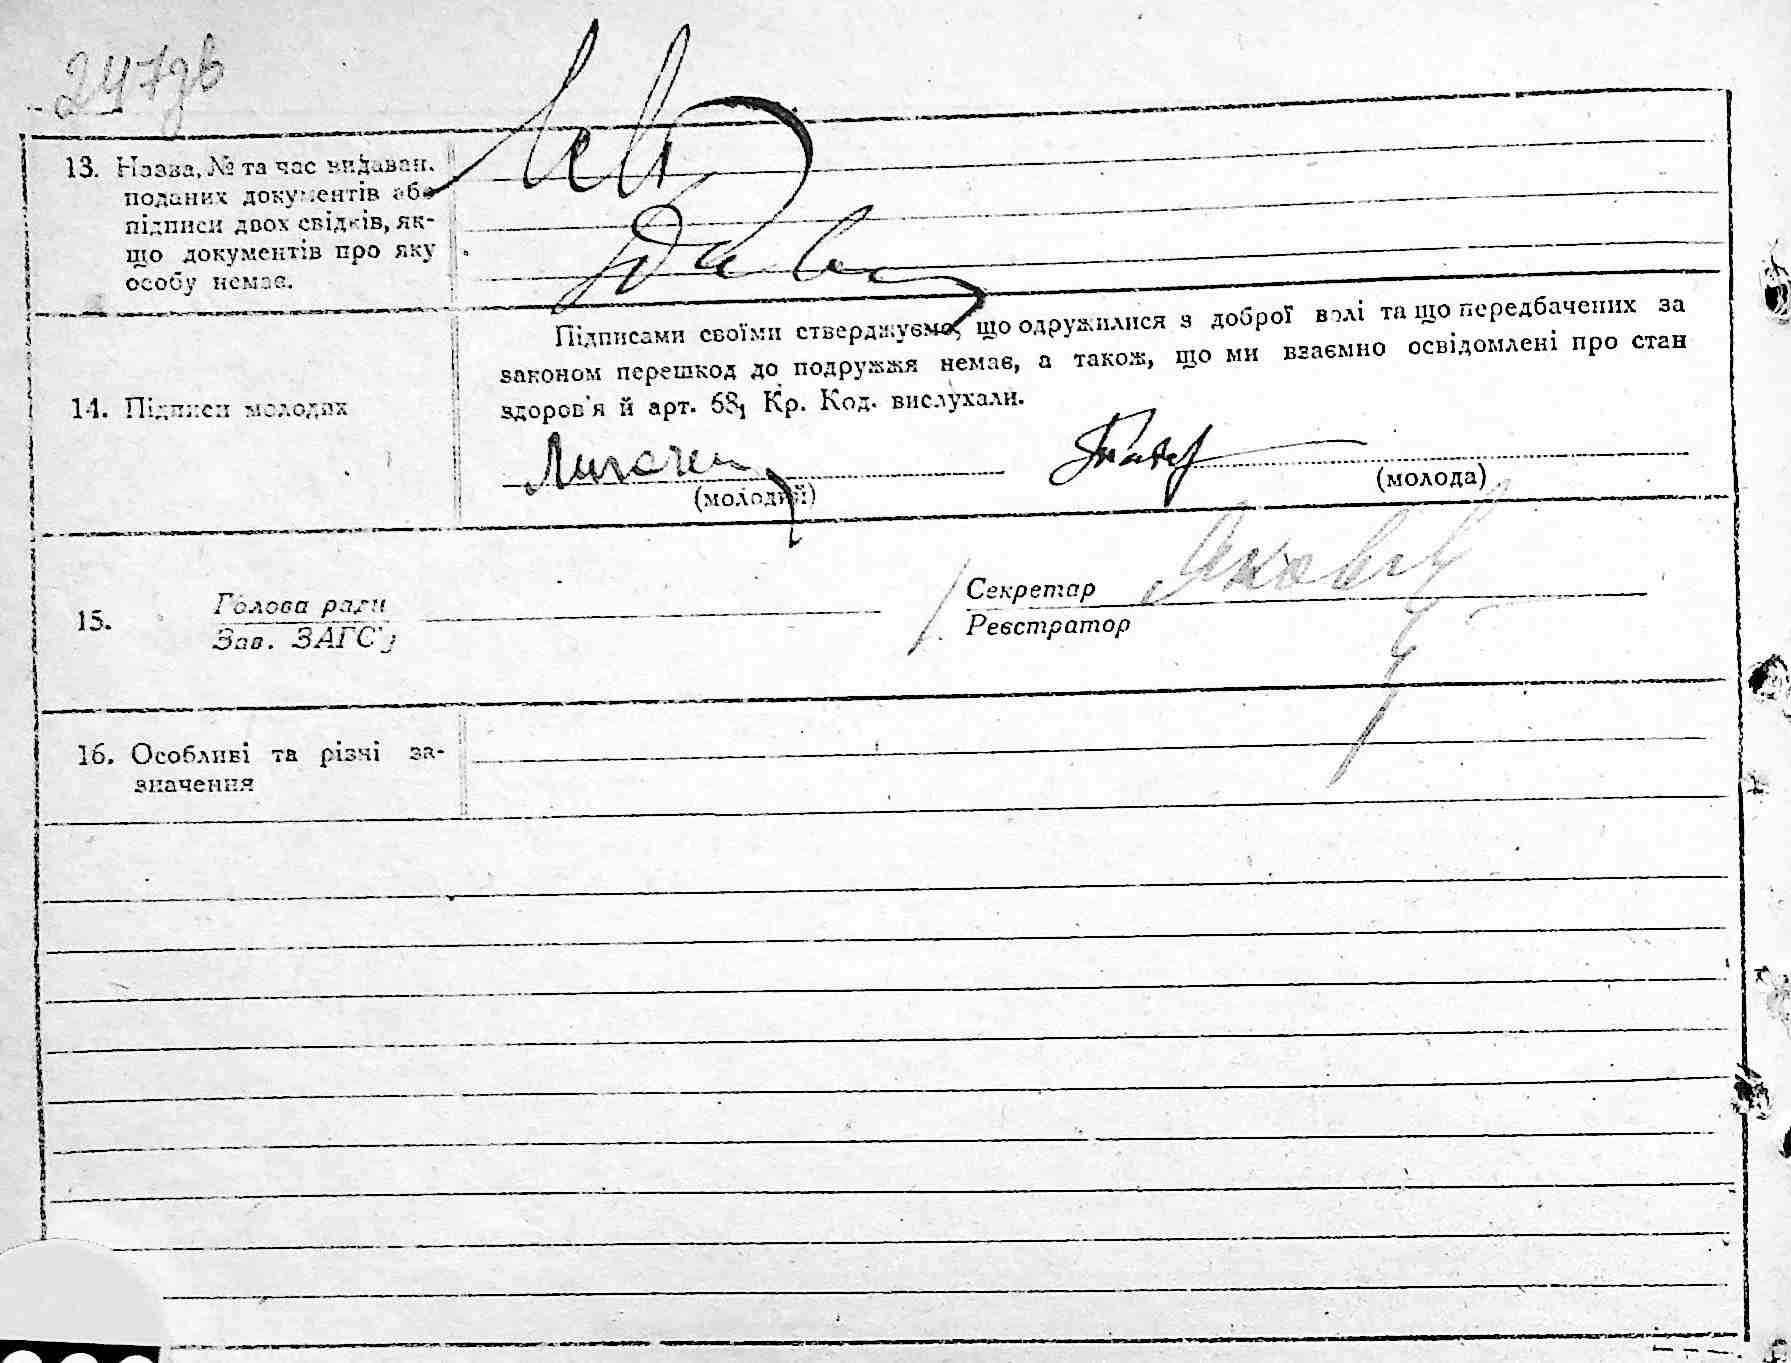 247зв
13. Назва, № та час видаван.
поданих документів або
підписи двох свідків, як-
що документів про яку
особу немає.
Підписами своїми стверджуємо, що одружилися з доброї волі та що передбачених за
законом перешкод до подружжя немає, а також, що ми взаємно освідомлені про стан
здоров'я й арт. 68, Кр. Код. вислухали.
14. Підписи молодих
(молодий)
(молода)
15.
Голова ради
Зав. ЗАГС'у
Секретар
Реєстратор
16. Особливі та різні за-
значення